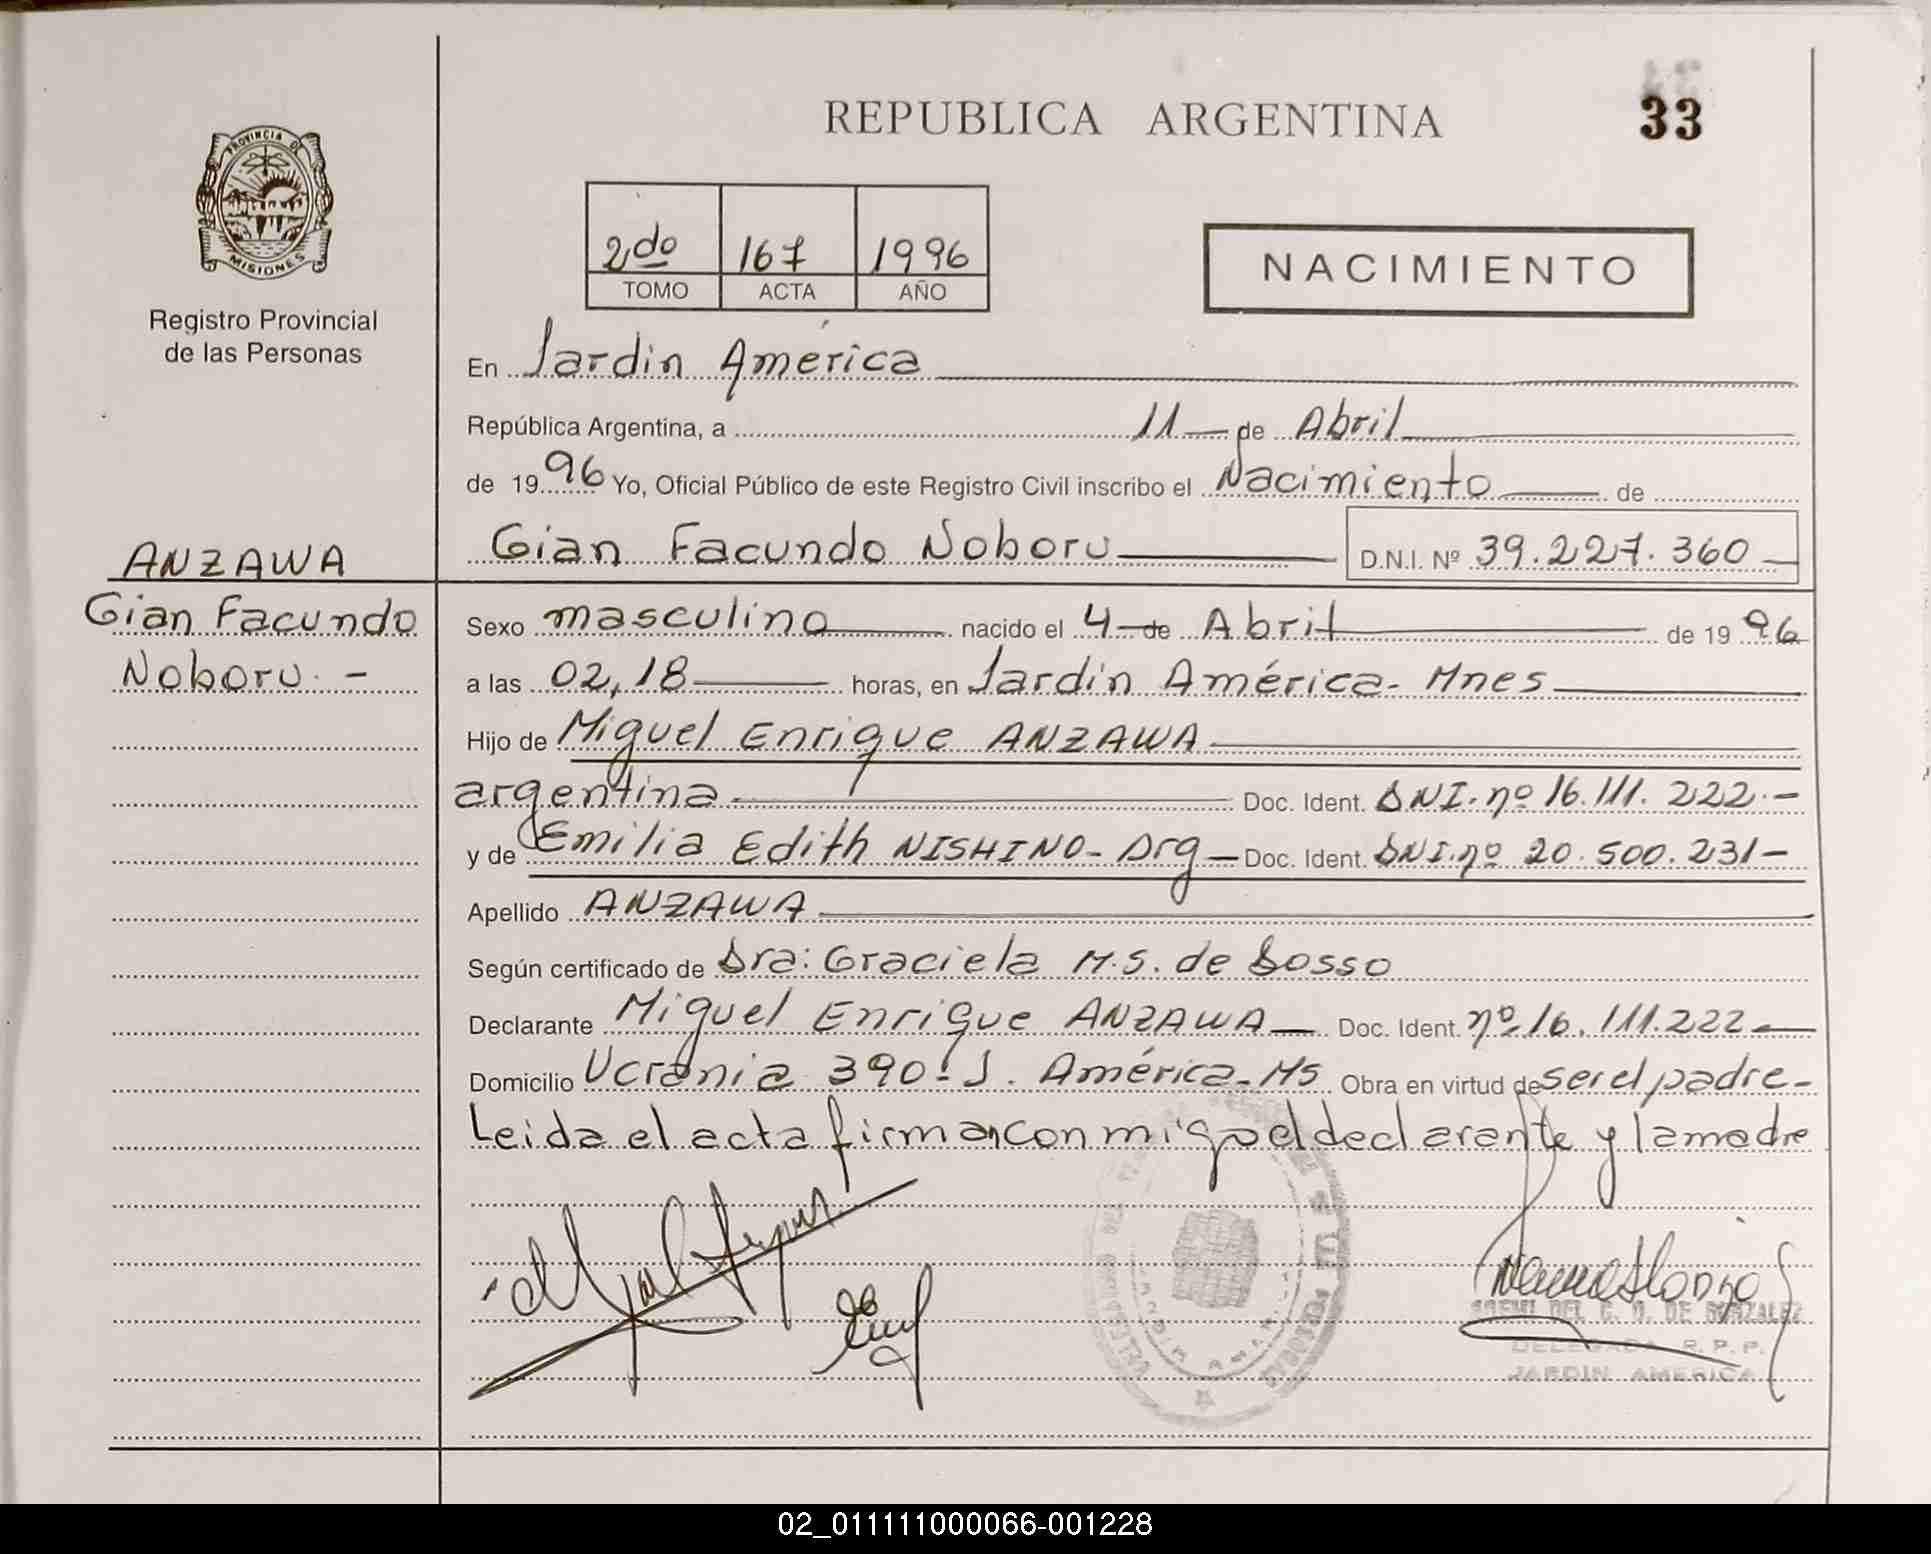 33
REPUBLICA ARGENTINA
PROVINCIA DE
MISIONES
Registro Provincial
de las Personas
2do 167 1996
TOMO ACTA AÑO
NACIMIENTO
En Jardin América
República Argentina, a 11 de Abril
de 1996 Yo, Oficial Público de este Registro Civil inscribo el Nacimiento de
Gian Facundo Noboru D.N.I. Nº 39.227.360
ANZAWA
Gian Facundo
Noboru. -
Sexo masculino nacido el 4 de Abril de 1996
a las 02,18 horas, en Jardin América- Mnes
Hijo de Miguel Enrique ANZAWA
argentina Doc. Ident. DNI. nº 16.111.222.-
y de Emilia Edith NISHINO- Arg Doc. Ident. DNI. nº 20.500.231-
Apellido ANZAWA
Según certificado de Dra: Graciela M.S. de Sosso
Declarante Miguel Enrique ANZAWA Doc. Ident. nº 16.111.222
Domicilio Ucrania 390- J. América-Ms Obra en virtud de ser el padre-
Leida el acta firman con migo el declarante y la madre
DEL C. D. DE GONZALEZ
DELEGADA R.P.P.
JARDIN AMERICA
02_011111000066-001228